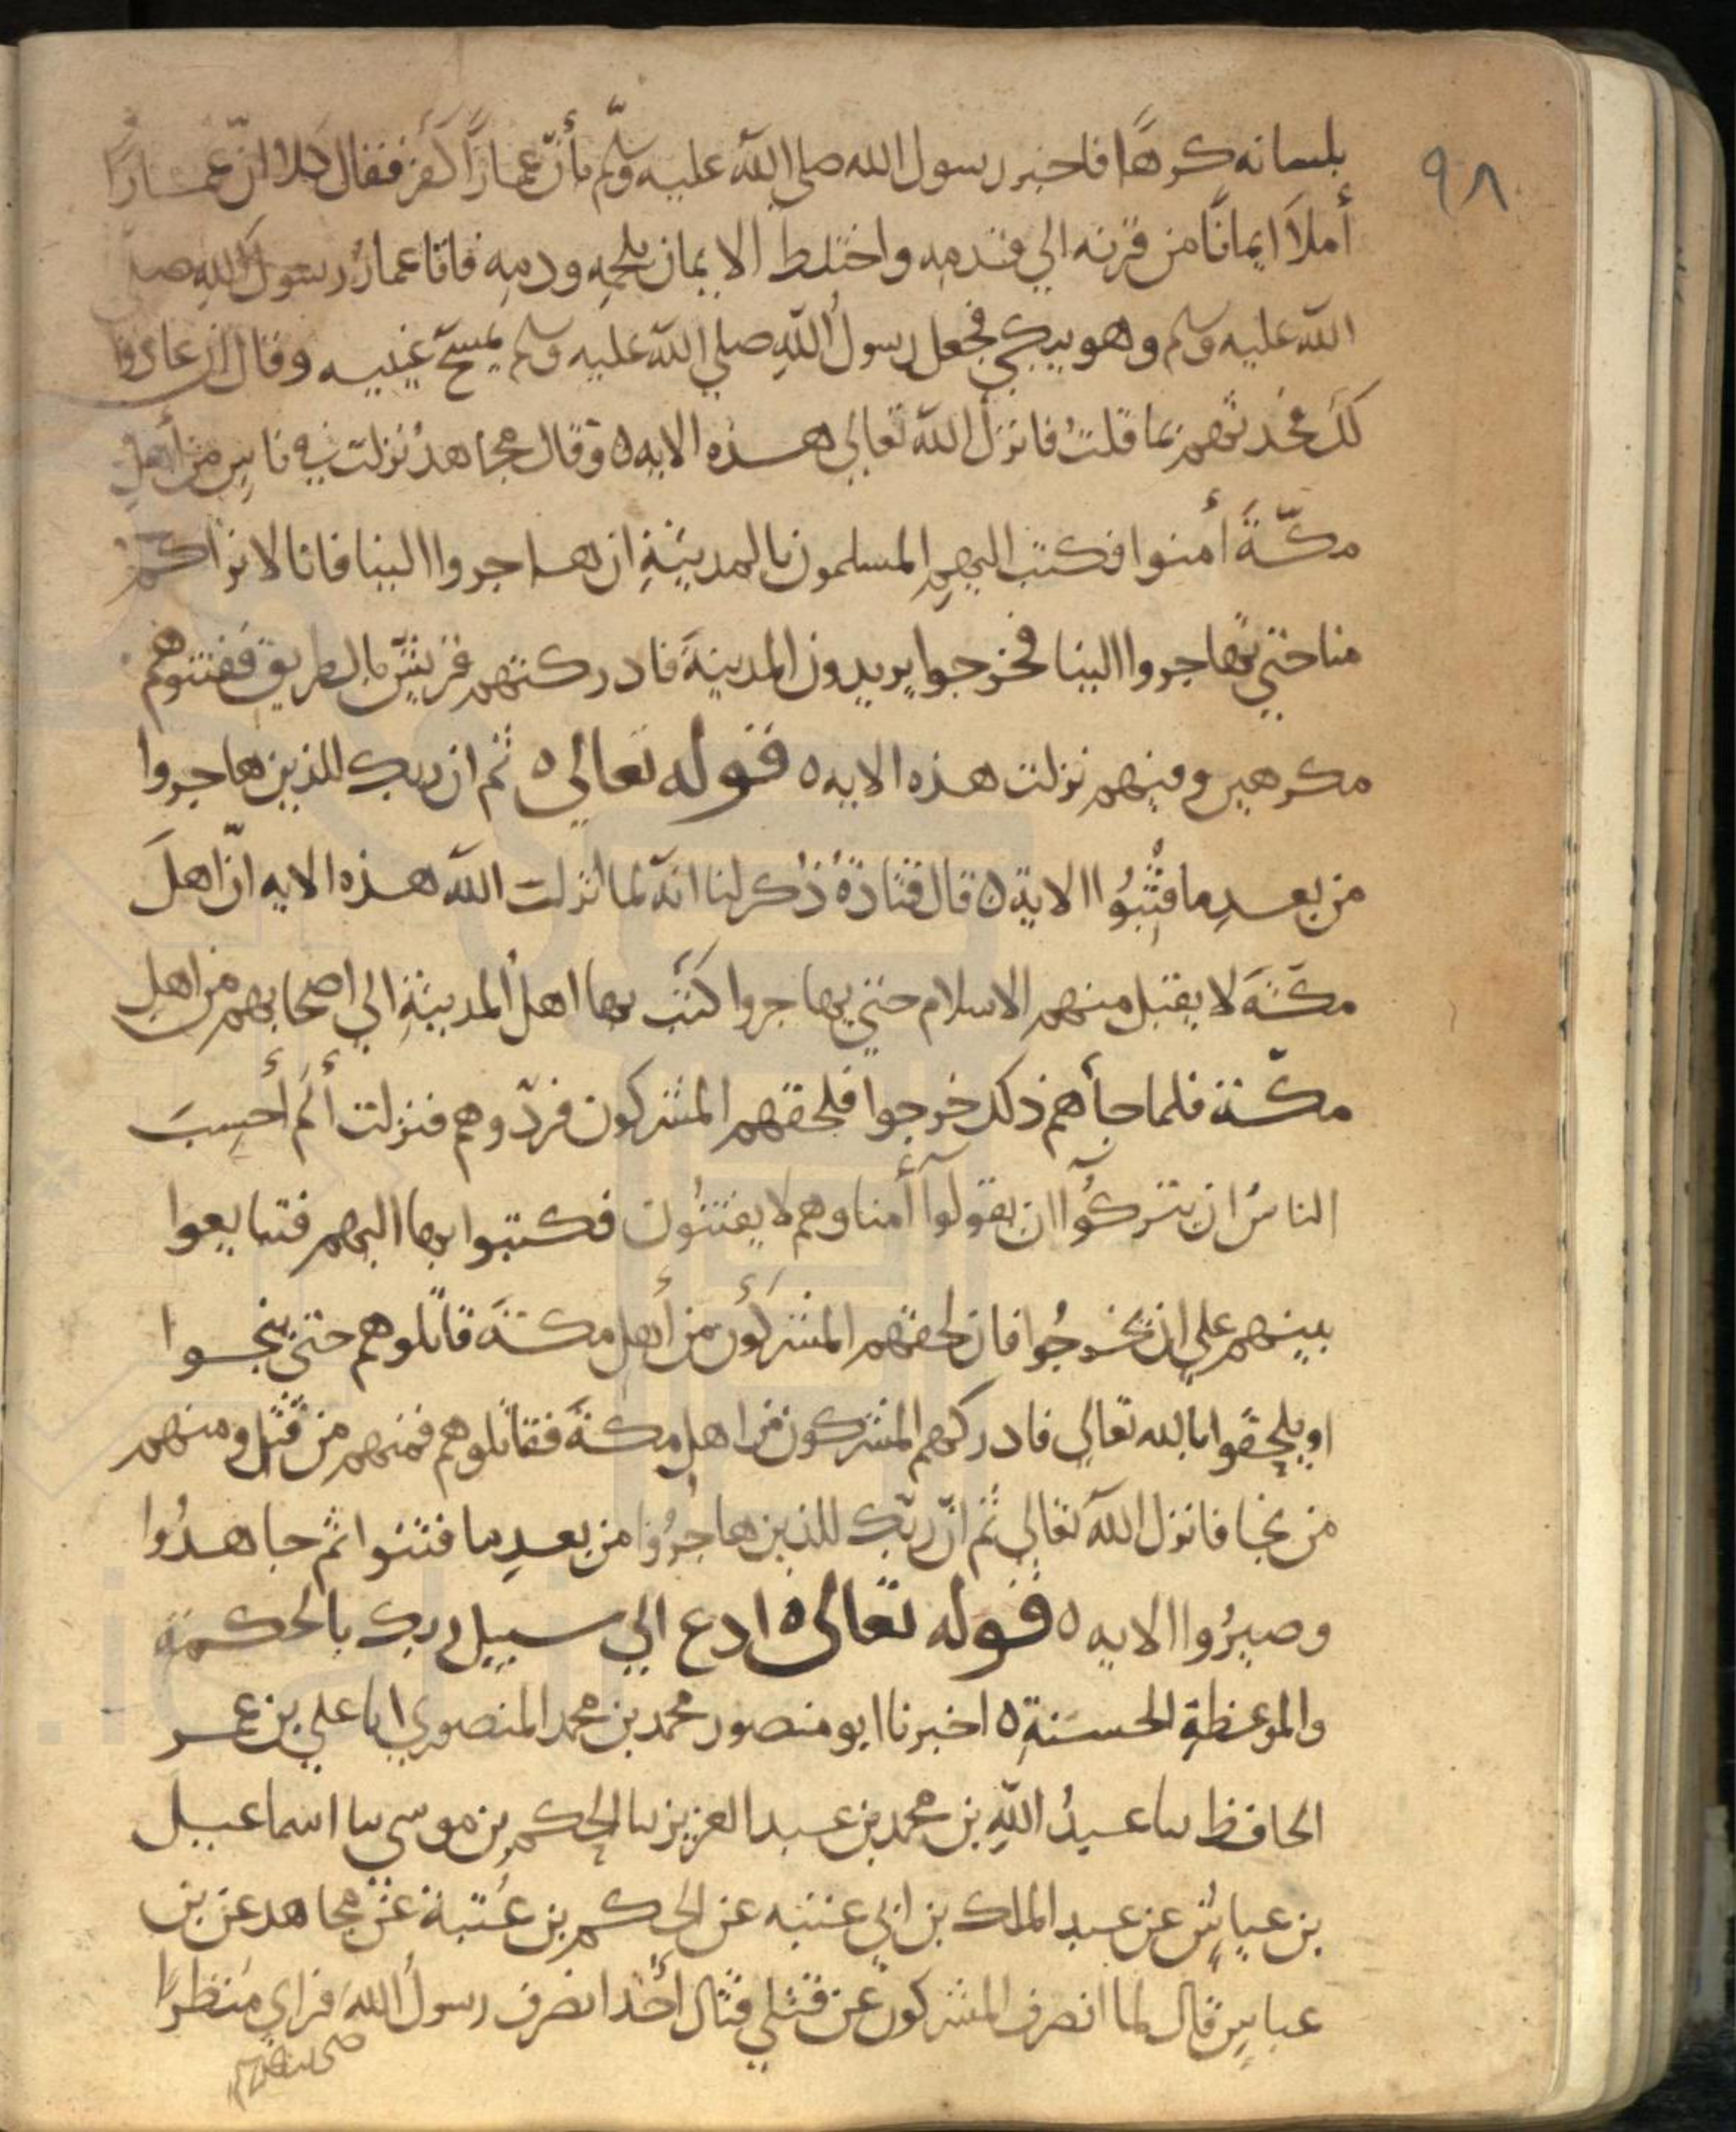 ٩٨
بلسانه كرهًا فاخبر رسول الله صلى الله عليه وسلّم بأنّ عمارًا كفر فقال كلا انّ عمارًا
أملأ ايمانًا من قرنه الي قدمه واختلط الايمان بلحمِهِ ودمِهِ فاتا عمارُ رسول الله صلى
الله عليه وسلم وهو يبكي فجعل رسولُ اللهِ صلي الله عليه وسلم يمسحُ عينيه وقال ان عادوا
لك فعد لهم بما قلتَ فانزل الله تعالي هذه الايه ٥ وقال مجاهدُ نزلت في ناسٍ من أهلِ
مكّةَ أمنوا فكتب اليهِم المسلمون بالمدينةِ ان هاجروا الينا فانا لا نراكم
منا حتي تهاجروا الينا فخرجوا يريدون المدينةَ فادركتهم قريشٌ بالطريق ففتنوهم
مكرهين وفيهم نزلت هذه الايه ٥ قوله تعالى ٥ ثم ان ربك للذين هاجروا
من بعدِ ما فُتِنُوا الاية ٥ قال قتادةُ ذُكر لنا انّه لما انزلت الله هذه الايه انّ اهلَ
مكّةَ لا يقبل منهم الاسلام حتي يهاجروا كتبَ بها اهلُ المدينةِ الي اصحابهم من اهلِ
مكّة فلما جأهم ذلك خرجوا فلحقهم المشركون فردّوهم فنزلت ألم أحسِبَ
الناسُ ان يتركُوآ ان يقولوآ أمنا وهم لا يفتنُون فكتبوا بها اليهم فتبايعوا
بينهم علي ان يخرجُوا فان لحقهم المشركُون من أهل مكةَ قاتلوهم حتى ينجوا
او يلحقوا بالله تعالي فادركهم المشركون من اهل مكةَ فقاتلوهم فمنهم من قُتِل ومنهم
من نجا فانزل الله تعالي ثم انّ ربّك للذين هاجرُوا من بعدِ ما فتنوا ثم جاهدُوا
وصبرُوا الايه ٥ قوله تعالى ٥ ادع الي سبيل ربك بالحكمة
والموعظةِ الحسَنةِ ٥ اخبرنا ابو منصور محمد بن محمد المنصوري انا علي بن عمر
الحافظ نا عبدُ اللهِ بن محمد بن عبد العزيز نا الحكم بن موسي نا اسماعيل
بن عياش عن عبد الملك بن ابي عتبه عن الحكم بن عُتبة عن مجاهد عن بن
عباسٍ قال لما انصرف المشركون عن قتلي قتال أحُد انصرف رسولُ اللهَ فراي منظرًا